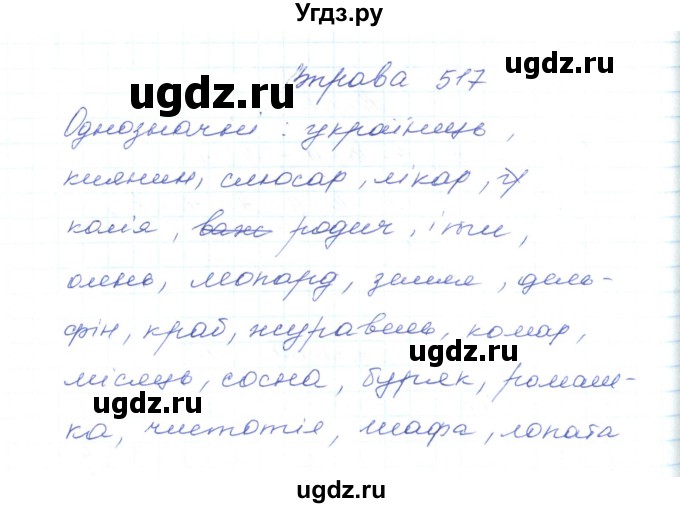 Угдз.ру
Вправа 517
ugdz.ru
ugdz.ru
Однозначні : українець,
киянин, слюсар, лікар,
колія, родич,
олень, леопард, земля, дель-
фін, краб, журавель, комар,
ugdz.ru
місяць, сосна, буряк, ромаш-
ugdz.ru
ка, чистотіл, шафа, лопата
ugdz.ru